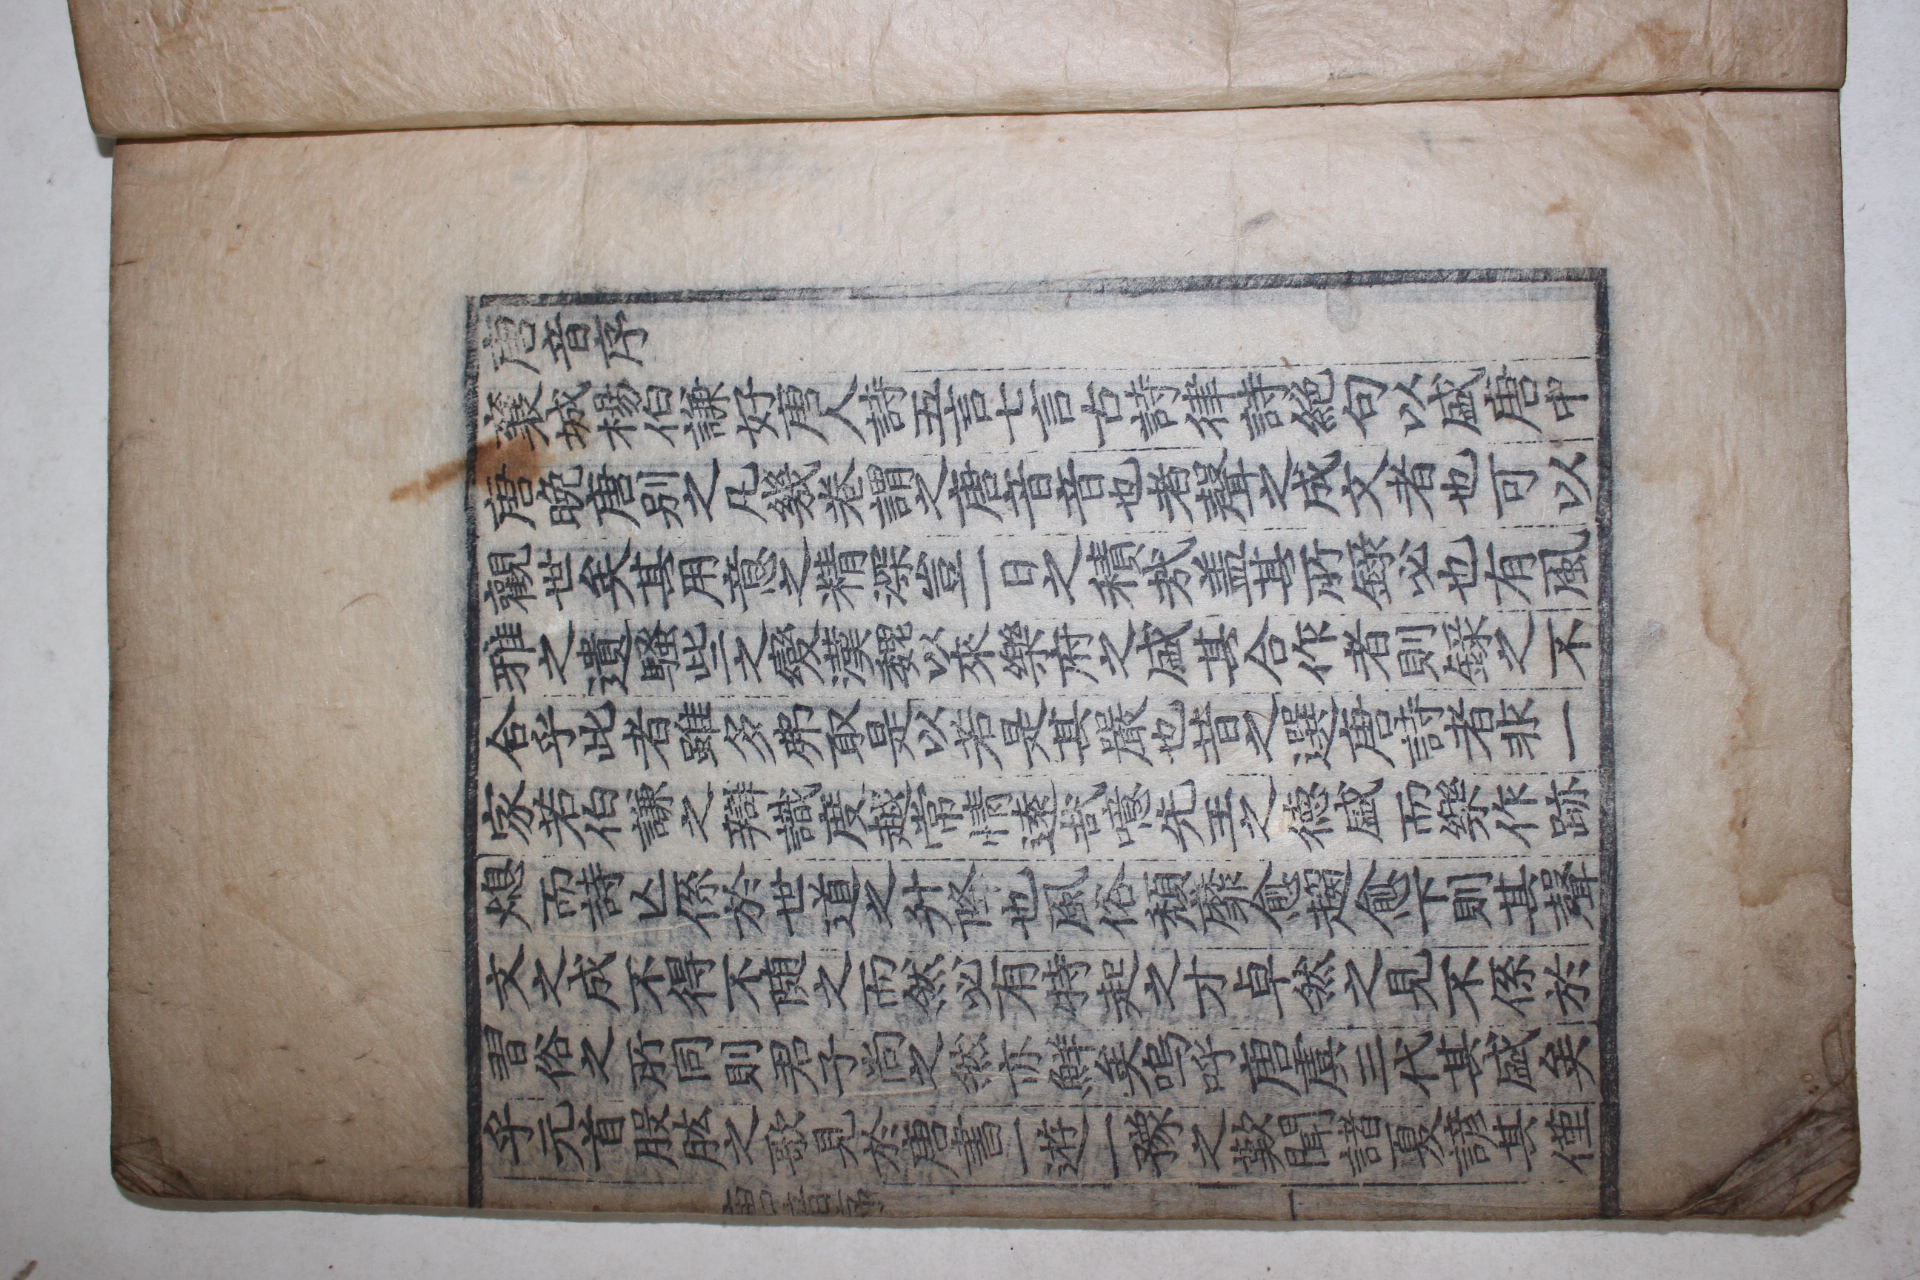 唐音序
襄城楊伯謙好唐人詩五言七言古詩律詩絕句以盛唐中
唐晚唐別之凡幾卷謂之唐音音也者聲之成文者也可以
觀世矣其用意之精深豈一日之積哉盖其所錄必也有風
雅之遺騷些之變漢魏以來樂府之盛其合作者則錄之不
合乎此者雖多弗取是以若是其嚴也昔之選唐詩者非一
家若伯謙之辯識度越常情遠哉噫先王之德盛而樂作跡
熄而詩亡係於世道之升降也風俗頹靡愈趨愈下則其聲
文之成不得不隨之而然必有特起之才卓然之見不係於
習俗之所同則君子尚之然亦鮮矣嗚呼唐虞三代其盛矣
乎元首股肱之歌見於唐書一遊一豫之歌聞諸夏諺其僅
唐音序 一